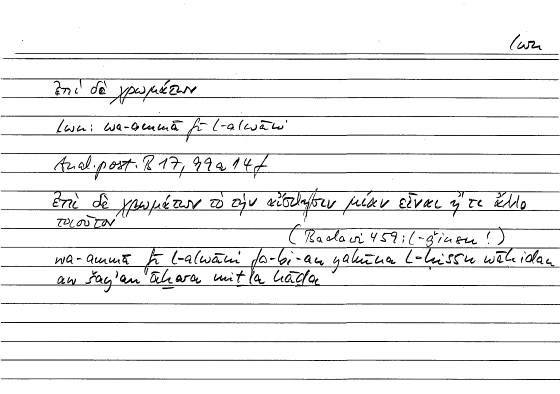 lwn
Ἐπὶ δὲ χρωμάτων
lwn: wa-ammā fī l-alwāni
Anal. post. B 17, 99a 14f
Ἐπὶ δὲ χρωμάτων τὸ τὴν αἴσθησιν μίαν εἶναι ἤ τι ἄλλο
τοιοῦτον
(Badawi 459: l-ǧinsu!)
wa-ammā fī l-alwāni fa-bi-an yakūna l-ḥissu wāḥidan
aw šayʾan āḫara miṯla hāḏā